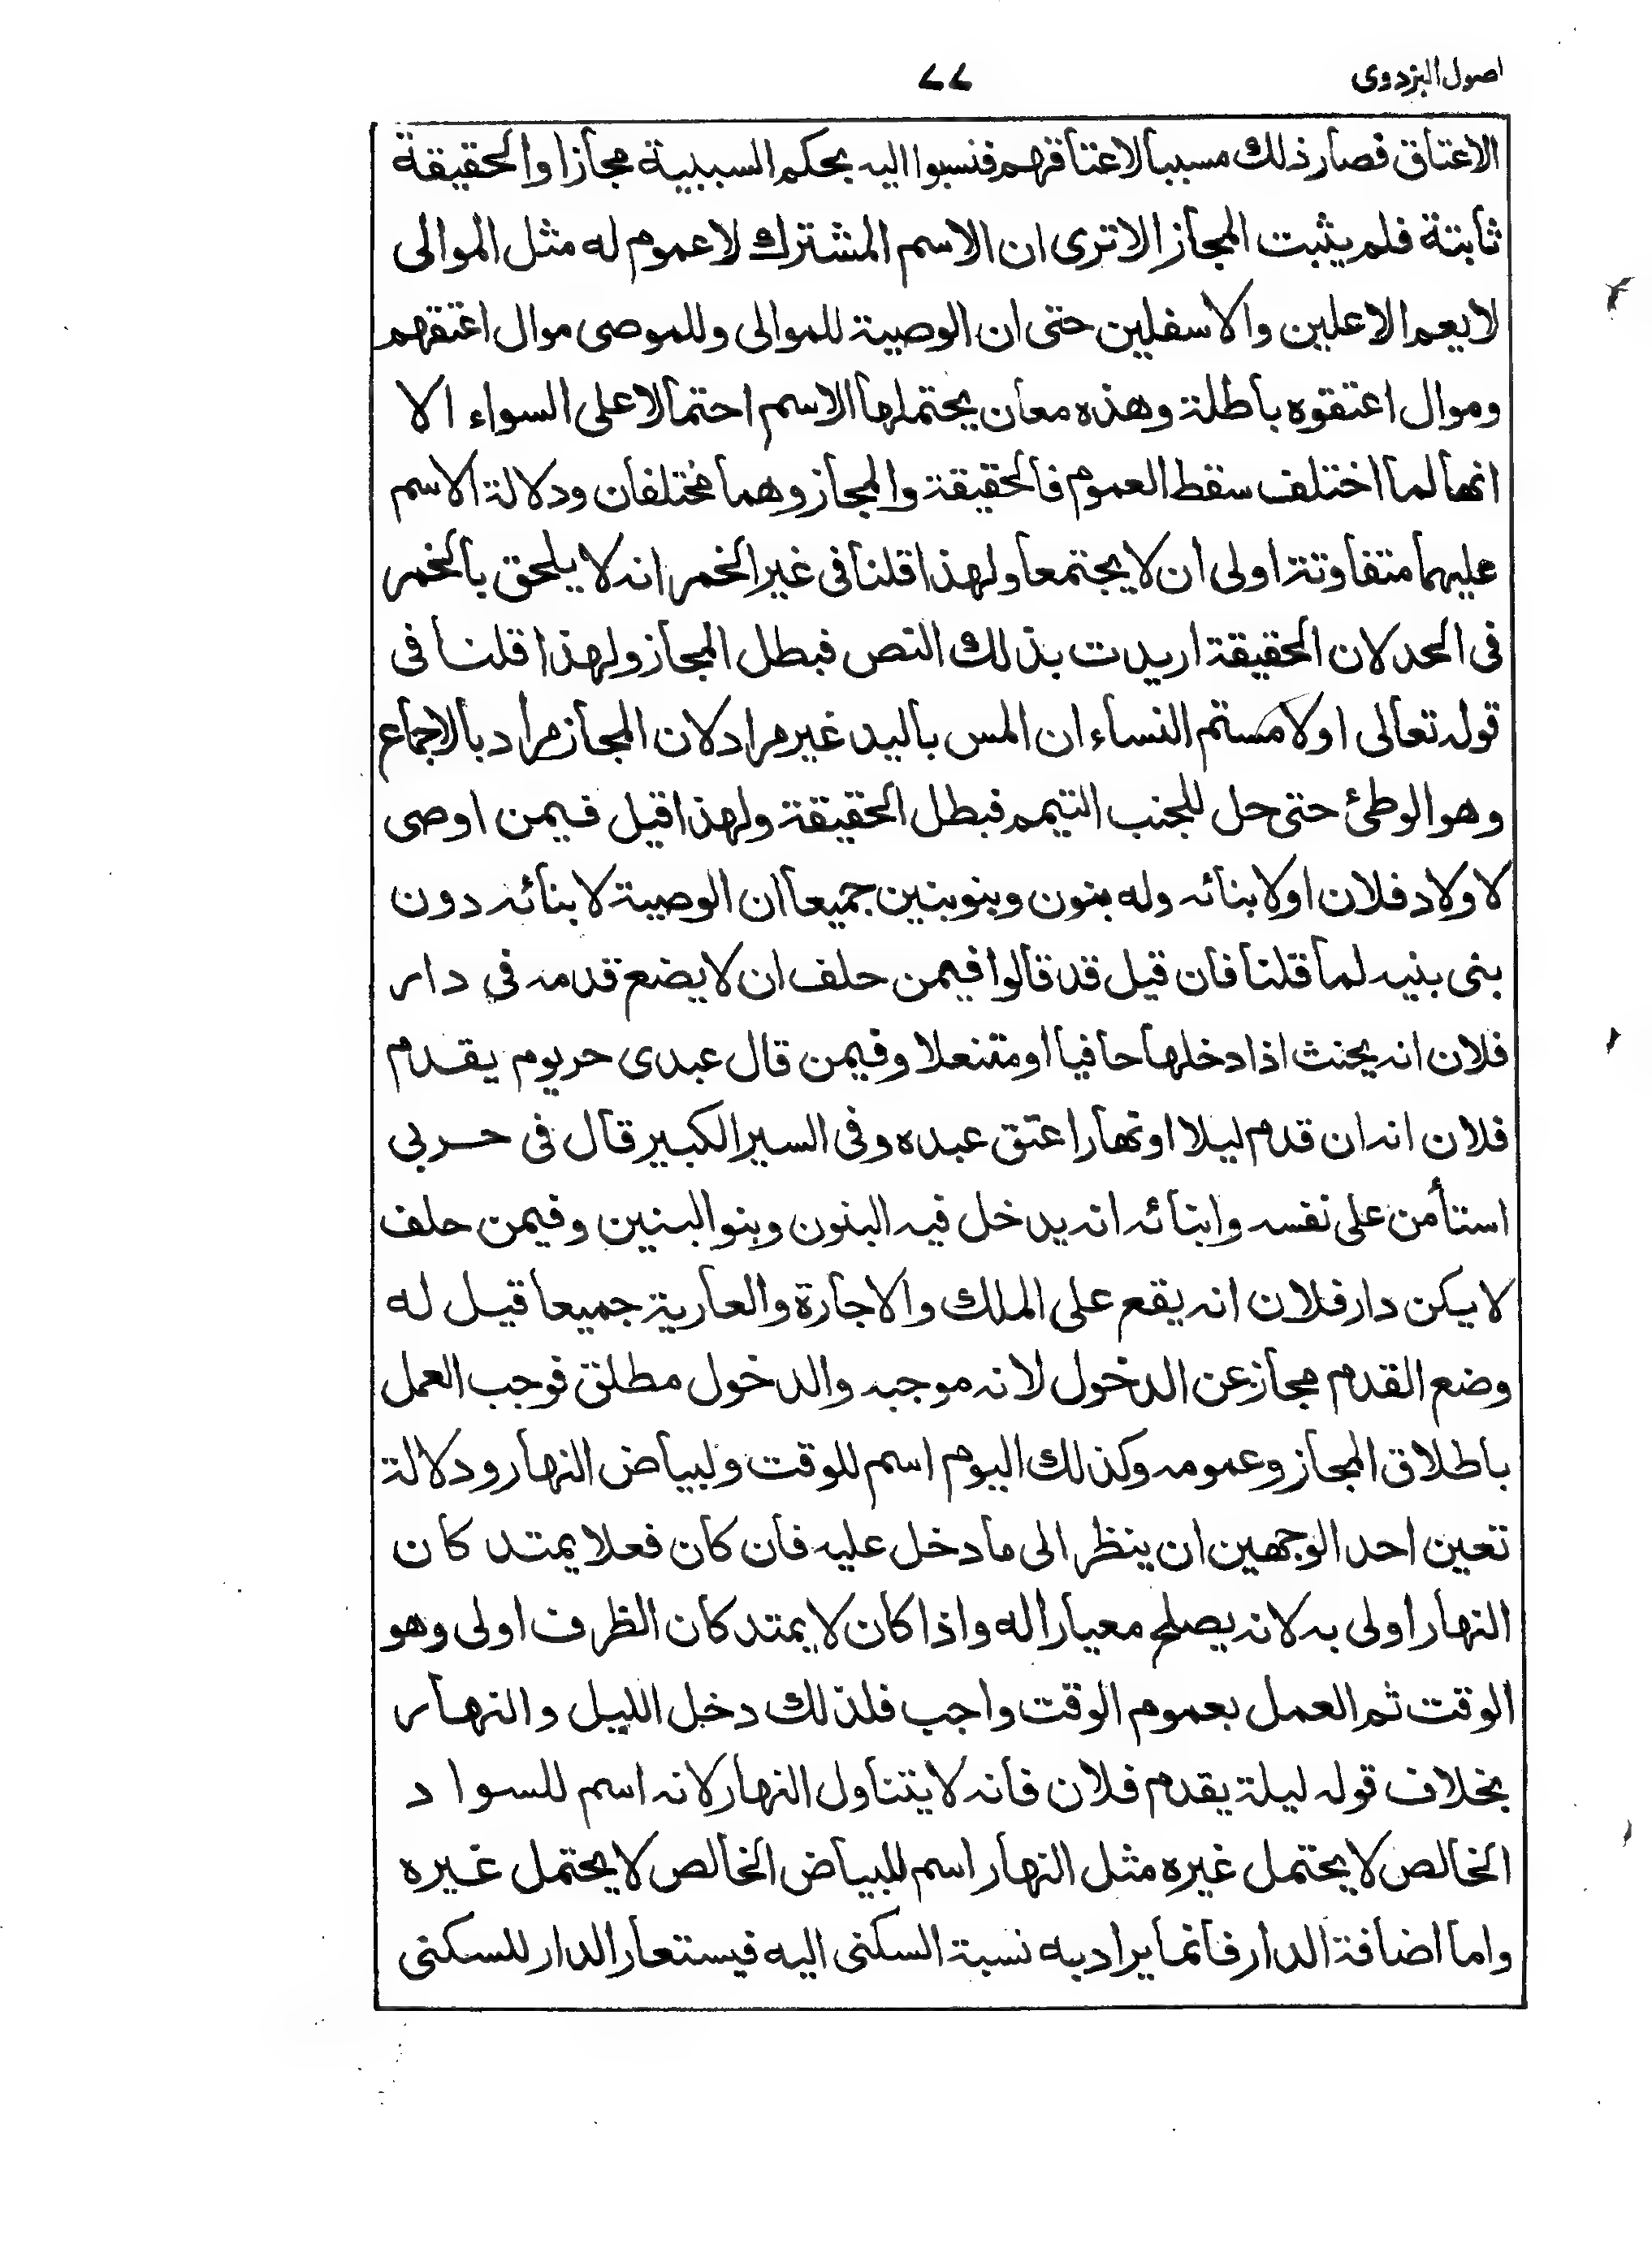 اصول البزدوى ۷۷
الاعتاق فصار ذلك مسببا لاعتاقهم فنسبوا اليه بحكم السببية مجازا والحقيقة
ثابتة فلم يثبت المجاز الا ترى ان الاسم المشترك لا عموم له مثل الموالى
لا يعم الاعلين والاسفلين حتى ان الوصية للموالى وللموصى موال اعتقهم
وموال اعتقوه باطلة وهذه معان يحتملها الاسم احتمالا على السواء الا
انها لما اختلف سقط العموم فالحقيقة والمجاز وهما مختلفان ودلالة الاسم
عليهما متفاوتة اولى ان لا يجتمعا ولهذا قلنا فى غير الخمر انه لا يلحق بالخمر
فى الحد لان الحقيقة اريدت بذلك النص فبطل المجاز ولهذا قلنا فى
قوله تعالى او لامستم النساء ان المس باليد غير مراد لان المجاز مراد بالاجماع
وهو الوطئ حتى حل للجنب التيمم فبطل الحقيقة ولهذا قيل فيمن اوصى
لاولاد فلان او لابنائه وله بنون وبنو بنين جميعا ان الوصية لابنائه دون
بنى بنيه لما قلنا فان قيل قد قالوا فيمن حلف ان لا يضع قدمه في دار
فلان انه يحنث اذا دخلها حافيا او متنعلا وفيمن قال عبدى حر يوم يقدم
فلان انه ان قدم ليلا او نهارا عتق عبده وفى السير الكبير قال فى حربى
استأمن على نفسه وابنائه انه يدخل فيه البنون وبنو البنين وفيمن حلف
لا يسكن دار فلان انه يقع على الملك والاجارة والعارية جميعا قيل له
وضع القدم مجاز عن الدخول لانه موجبه والدخول مطلق فوجب العمل
باطلاق المجاز وعمومه وكذلك اليوم اسم للوقت ولبياض النهار ودلالة
تعين احد الوجهين ان ينظر الى ما دخل عليه فان كان فعلا يمتد كان
النهار اولى به لانه يصلح معيارا له واذا كان لا يمتد كان الظرف اولى وهو
الوقت ثم العمل بعموم الوقت واجب فلذلك دخل الليل والنهار
بخلاف قوله ليلة يقدم فلان فانه لا يتناول النهار لانه اسم للسواد
الخالص لا يحتمل غيره مثل النهار اسم للبياض الخالص لا يحتمل غيره
واما اضافة الدار فانما يراد به نسبة السكنى اليه فيستعار الدار للسكنى